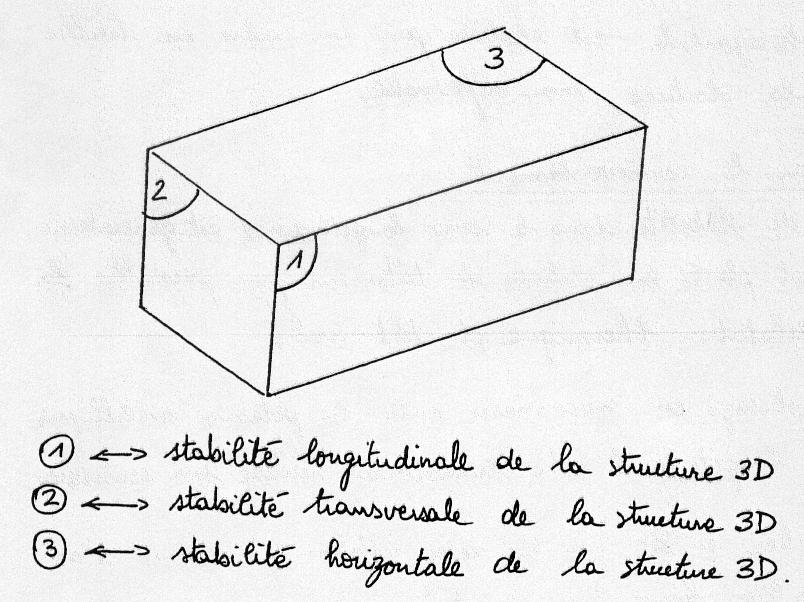 3
2
1
① ↔ stabilité longitudinale de la structure 3D
② ↔ stabilité transversale de la structure 3D
③ ↔ stabilité horizontale de la structure 3D.